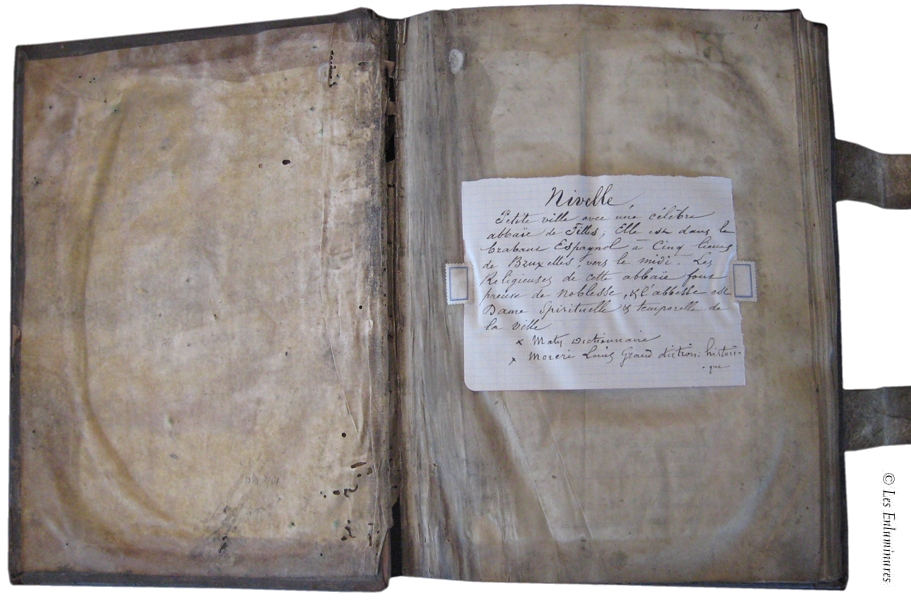 Nivelle
Petite ville avec une célèbre
abbaïe de Filles, Elle est dans le
brabant Espagnol à Cinq lieues
de Bruxelles, vers le midi. Les
Religieuses de cette abbaïe font
preuve de noblesse, & l'abbesse est
Dame Spirituelle & temporelle de
la ville
x Maty Dictionnaire
x Moreri Louis Grand diction. histori-
que
© Les Enluminures